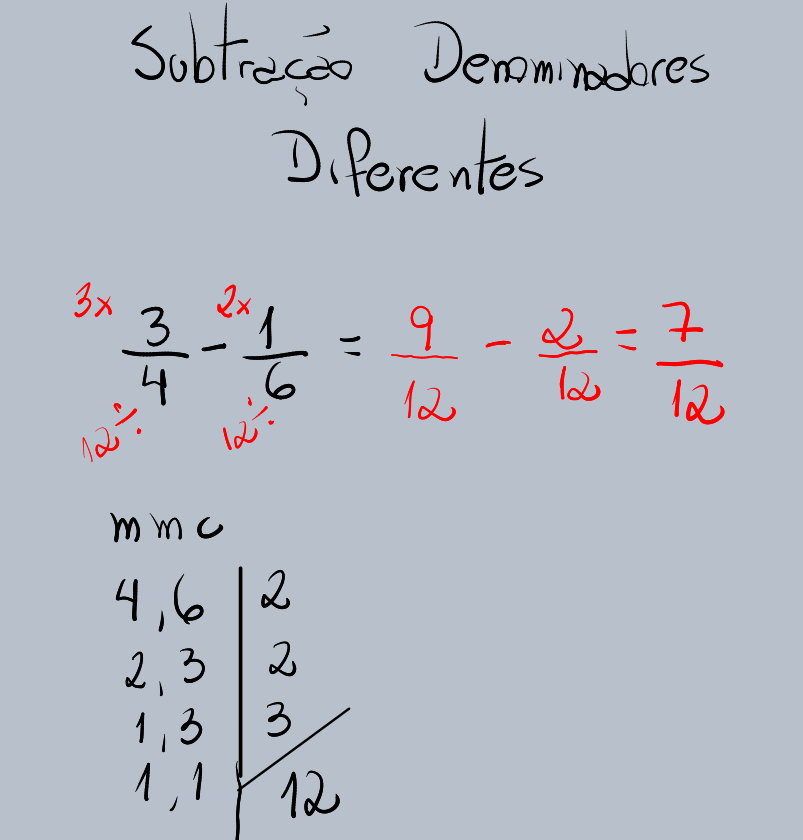 Subtração Denominadores
Diferentes
3x 2x
3/4 - 1/6 = 9/12 - 2/12 = 7/12
12÷ 12÷
mmc
4,6 | 2
2,3 | 2
1,3 | 3
1,1 | 12